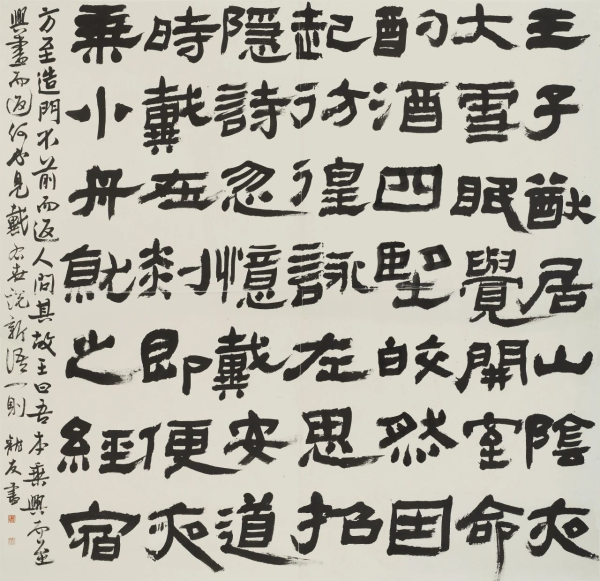 王子猷居山陰夜
大雪眠覺開室命
酌酒四望皎然因
起彷徨詠左思招
隱詩忽憶戴安道
時戴在剡即便夜
乘小舟就之經宿
方至造門不前而返人問其故王曰吾本乘興而至
興盡而返何必見戴右世說新語一則 耕友書